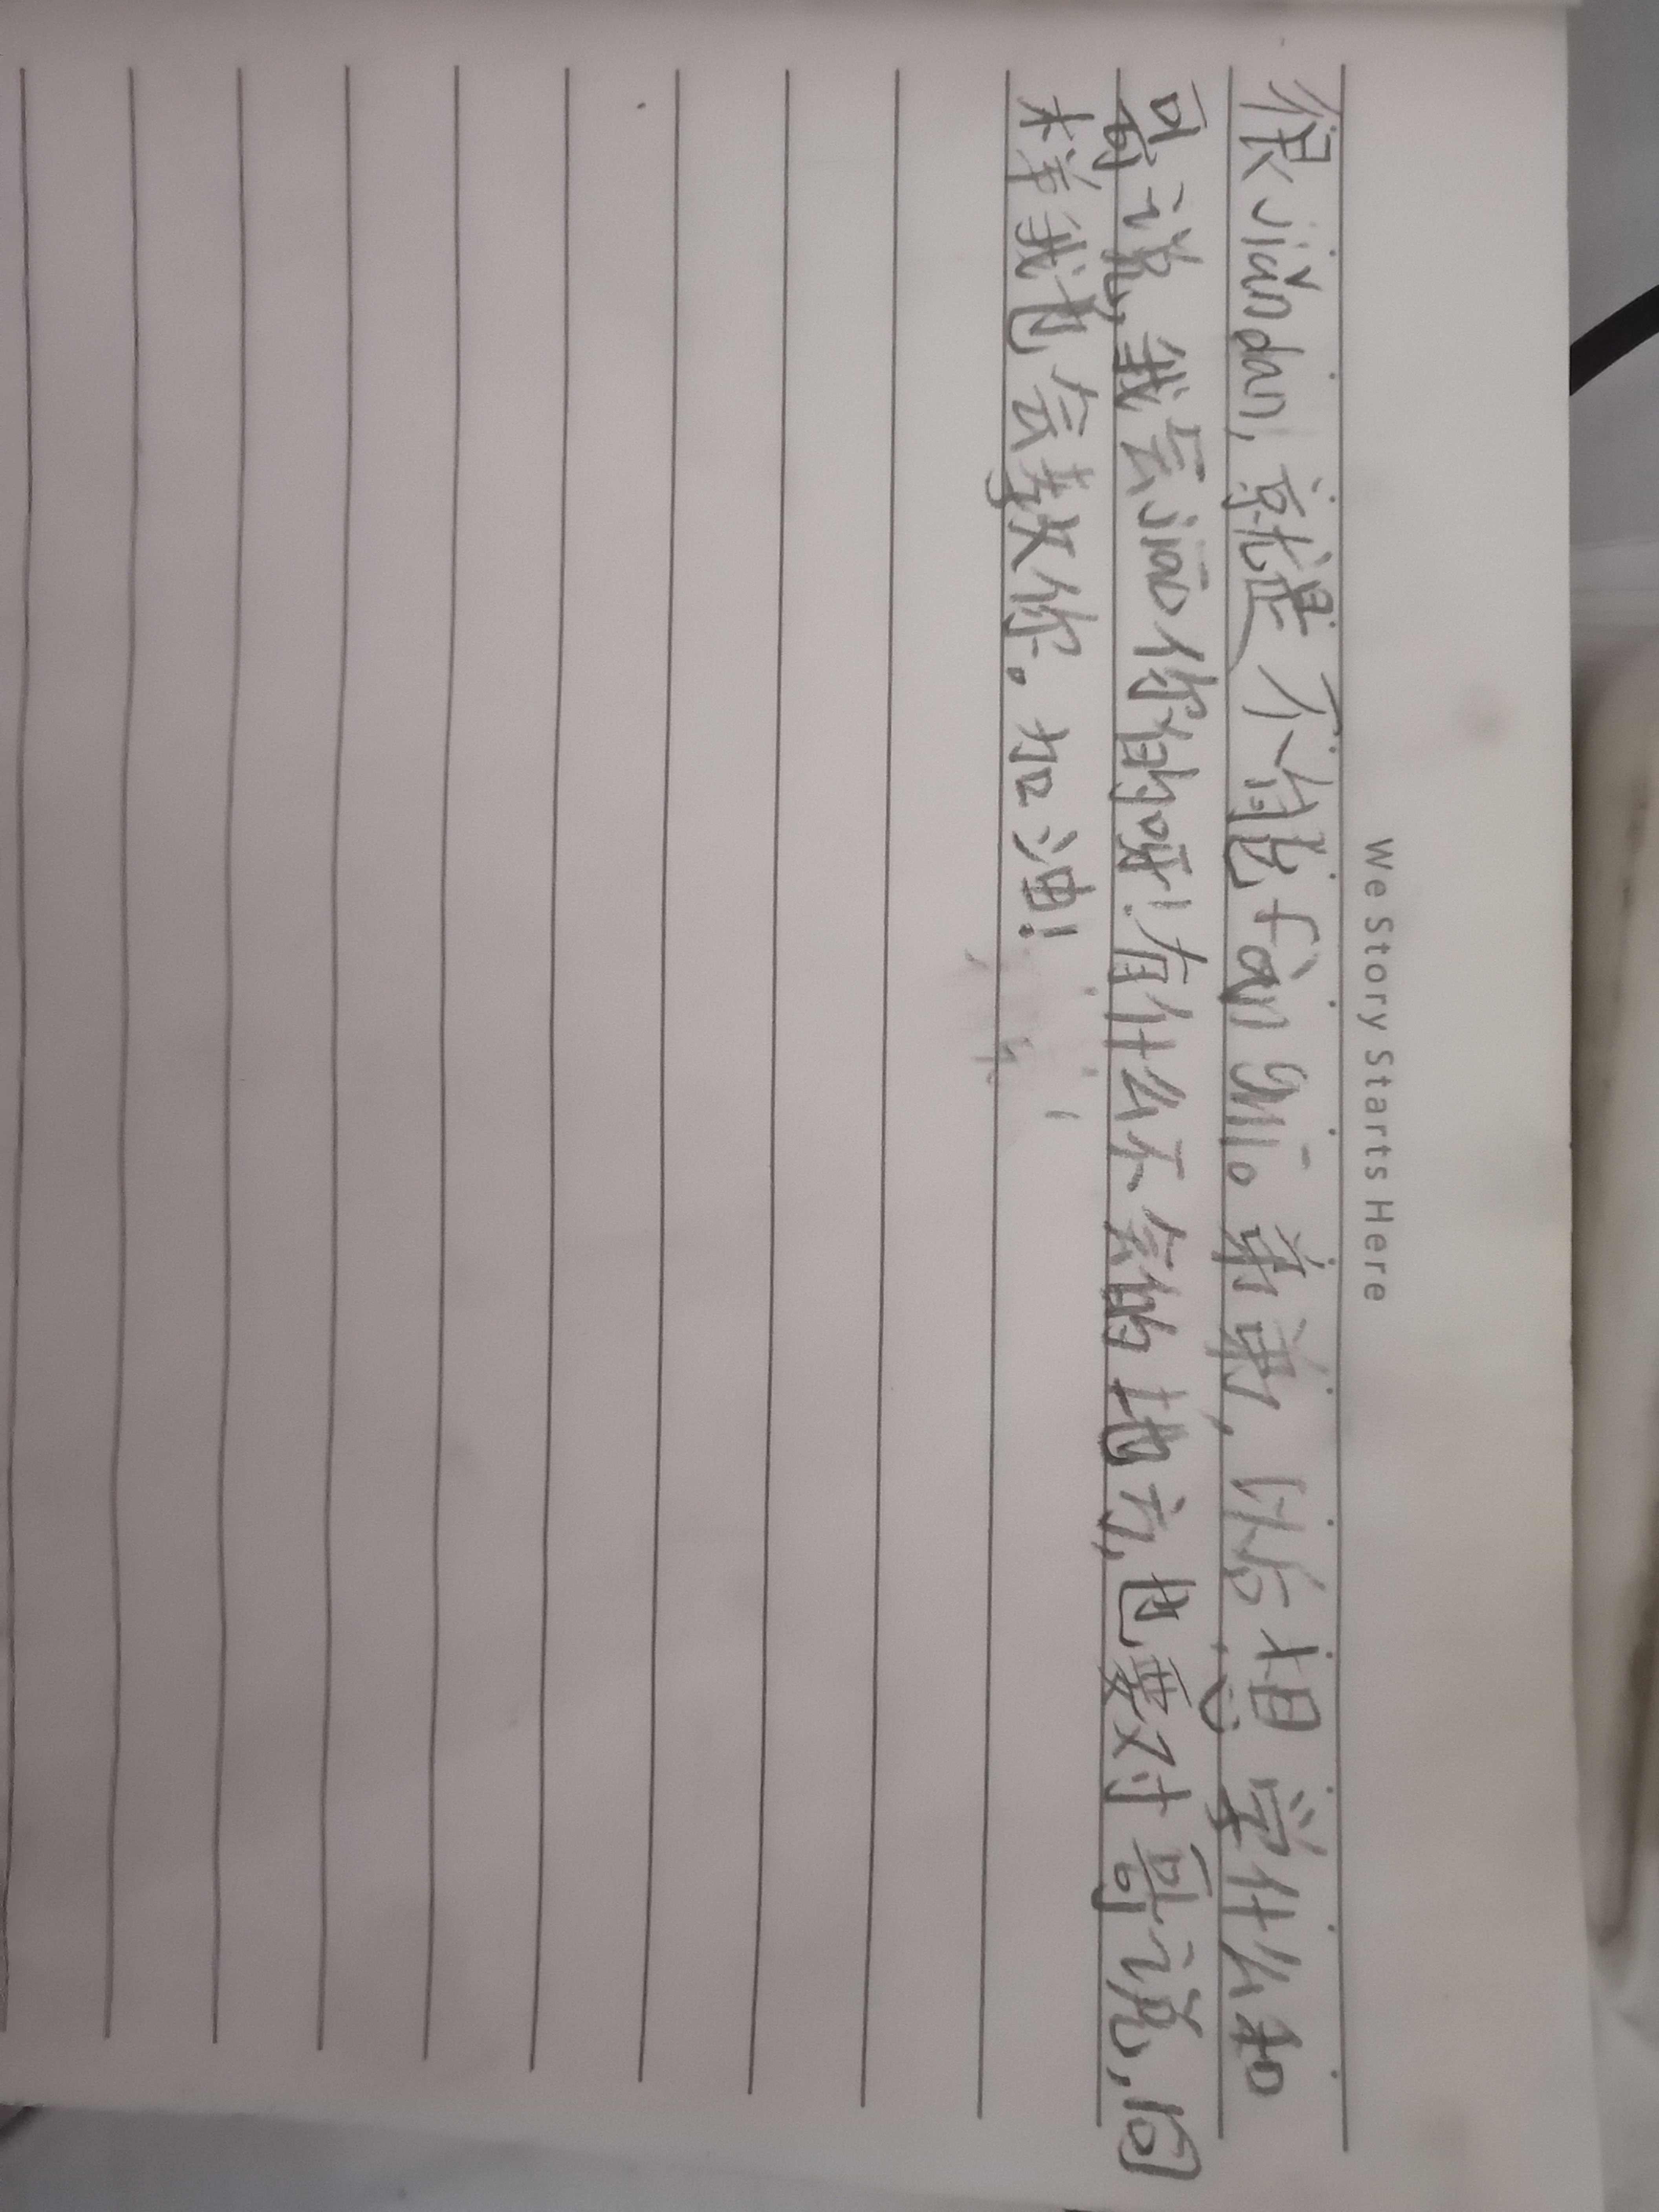 We Story Starts Here
很jiǎndan,就是不能fàn guī。弟弟,以后想学什么和
哥说,我会jiāo你的呀!有什么不会的地方,也要对哥说,回
来羊我也会教你。加油!